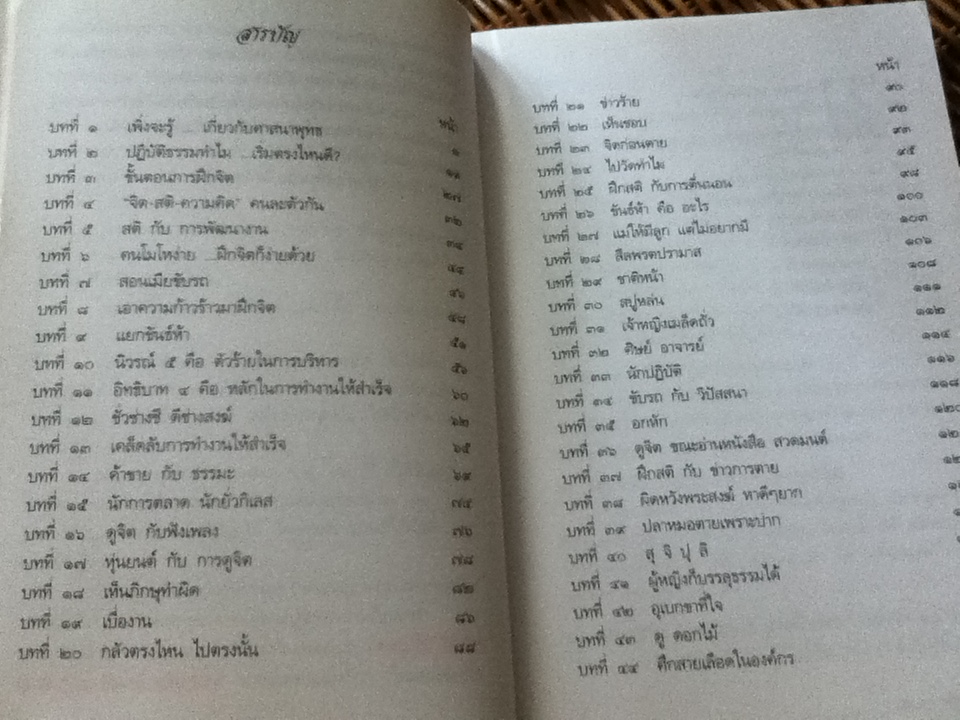 สารบัญ
หน้า
บทที่ ๑ เพิ่งจะรู้ ...เกี่ยวกับศาสนาพุทธ ๑
บทที่ ๒ ปฏิบัติธรรมทำไม ...เริ่มตรงไหนดี?
บทที่ ๓ ขั้นตอนการฝึกจิต ๒๗
บทที่ ๔ "จิต-สติ-ความคิด" คนละตัวกัน ๓๒
บทที่ ๕ สติ กับ การพัฒนางาน ๓๘
บทที่ ๖ คนโมโหง่าย ...ฝึกจิตก็ง่ายด้วย ๔๔
บทที่ ๗ สอนเมียขับรถ ๔๖
บทที่ ๘ เอาความก้าวร้าวมาฝึกจิต ๔๘
บทที่ ๙ แยกขันธ์ห้า ๕๑
บทที่ ๑๐ นิวรณ์ ๕ คือ ตัวร้ายในการบริหาร ๕๖
บทที่ ๑๑ อิทธิบาท ๔ คือ หลักในการทำงานให้สำเร็จ ๖๐
บทที่ ๑๒ ชั่วช่างชี ดีช่างสงฆ์ ๖๒
บทที่ ๑๓ เคล็ดลับการทำงานให้สำเร็จ ๖๕
บทที่ ๑๔ ค้าขาย กับ ธรรมะ ๖๙
บทที่ ๑๕ นักการตลาด นักยั่วกิเลส ๗๔
บทที่ ๑๖ ดูจิต กับฟังเพลง ๗๖
บทที่ ๑๗ หุ่นยนต์ กับ การดูจิต ๗๘
บทที่ ๑๘ เห็นภิกษุทำผิด ๘๒
บทที่ ๑๙ เบื่องาน ๘๖
บทที่ ๒๐ กลัวตรงไหน ไปตรงนั้น ๘๘
หน้า
บทที่ ๒๑ ข่าวร้าย ๙๐
บทที่ ๒๒ เห็นชอบ ๙๒
บทที่ ๒๓ จิตก่อนตาย ๙๓
บทที่ ๒๔ ไปวัดทำไม ๙๕
บทที่ ๒๕ ฝึกสติ กับการตื่นนอน ๙๘
บทที่ ๒๖ ขันธ์ห้า คือ อะไร ๑๐๐
บทที่ ๒๗ แม่ให้มีลูก แต่ไม่อยากมี ๑๐๓
บทที่ ๒๘ สีลพรตปรามาส ๑๐๖
บทที่ ๒๙ ชาติหน้า ๑๐๘
บทที่ ๓๐ สบู่หล่น ๑๑๑
บทที่ ๓๑ เจ้าหญิงเมล็ดถั่ว ๑๑๒
บทที่ ๓๒ ศิษย์ อาจารย์ ๑๑๔
บทที่ ๓๓ นักปฏิบัติ ๑๑๖
บทที่ ๓๔ ขับรถ กับ วิปัสสนา ๑๑๘
บทที่ ๓๕ อกหัก ๑๒๐
บทที่ ๓๖ ดูจิต ขณะอ่านหนังสือ สวดมนต์
บทที่ ๓๗ ฝึกสติ กับ ข่าวการตาย
บทที่ ๓๘ ผิดหวังพระสงฆ์ หาดีๆยาก
บทที่ ๓๙ ปลาหมอตายเพราะปาก
บทที่ ๔๐ สุ จิ ปุ ลิ
บทที่ ๔๑ ผู้หญิงก็บรรลุธรรมได้
บทที่ ๔๒ อุเบกขาที่ใจ
บทที่ ๔๓ ดู ดอกไม้
บทที่ ๔๔ ศึกสายเลือดในองค์กร